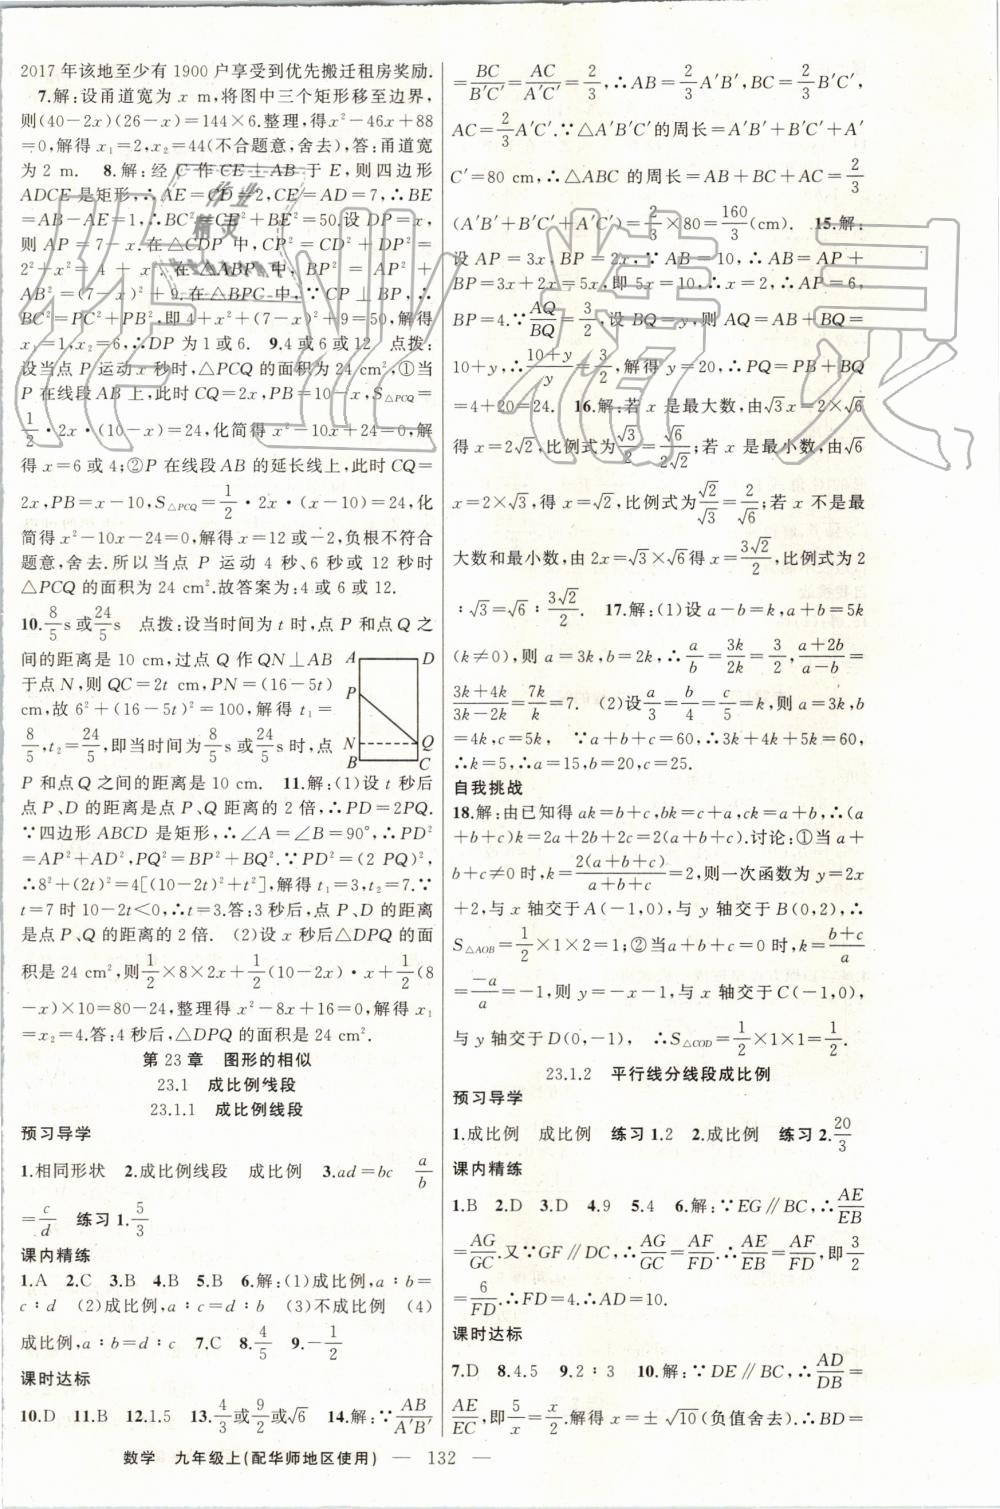 2017年该地至少有1900户享受到优先搬迁租房奖励.
7.解:设甬道宽为x m,将图中三个矩形移至边界,
则(40-2x)(26-x)=144×6.整理,得x²-46x+88
=0,解得x₁=2,x₂=44(不合题意,舍去),答:甬道宽
为2 m. 8.解:经C作CE⊥AB于E,则四边形
ADCE是矩形,∴AE=CD=2,CE=AD=7,∴BE
=AB-AE=1,∴BC²=CE²+BE²=50.设DP=x,
则AP=7-x.在△CDP中,CP²=CD²+DP²=
2²+x²=4+x².在△ABP中,BP²=AP²+
AB²=(7-x)²+9.在△BPC中,∵CP⊥BP,∴
BC²=PC²+PB²,即4+x²+(7-x)²+9=50,解得
x₁=1,x₂=6,∴DP为1或6. 9.4或6或12 点拨:
设当点P运动x秒时,△PCQ的面积为24 cm²,①当
P在线段AB上,此时CQ=2x,PB=10-x,S△PCQ=
1/2·2x·(10-x)=24,化简得x²-10x+24=0,解
得x=6或4;②P在线段AB的延长线上,此时CQ=
2x,PB=x-10,S△PCQ=1/2·2x·(x-10)=24,化
简得x²-10x-24=0,解得x=12或-2,负根不符合
题意,舍去.所以当点P运动4秒、6秒或12秒时
△PCQ的面积为24 cm².故答案为:4或6或12.
10.8/5s或24/5s 点拨:设当时间为t时,点P和点Q之
间的距离是10 cm,过点Q作QN⊥AB
于点N,则QC=2t cm,PN=(16-5t)
cm,故6²+(16-5t)²=100,解得t₁=
8/5,t₂=24/5,即当时间为8/5s或24/5s时,点
A D
P
N Q
B C
P和点Q之间的距离是10 cm. 11.解:(1)设t秒后
点P、D的距离是点P、Q距离的2倍,∴PD=2PQ.
∵四边形ABCD是矩形,∴∠A=∠B=90°,∴PD²
=AP²+AD²,PQ²=BP²+BQ².∵PD²=(2 PQ)²,
∴8²+(2t)²=4[(10-2t)²+t²],解得t₁=3,t₂=7.∵
t=7时10-2t<0,∴t=3.答:3秒后,点P、D的距离
是点P、Q的距离的2倍. (2)设x秒后△DPQ的面
积是24 cm²,则1/2×8×2x+1/2(10-2x)·x+1/2(8
-x)×10=80-24,整理得x²-8x+16=0,解得x₁
=x₂=4.答:4秒后,△DPQ的面积是24 cm².
第23章 图形的相似
23.1 成比例线段
23.1.1 成比例线段
预习导学
1.相同形状 2.成比例线段 成比例 3.ad=bc a/b
=c/d 练习1.5/3
课内精练
1.A 2.C 3.B 4.B 5.B 6.解:(1)成比例,a∶b=
c∶d (2)成比例,a∶c=d∶b (3)不成比例 (4)
成比例,a∶b=d∶c 7.C 8.4/5 9.-1/2
课时达标
10.D 11.B 12.1.5 13.4/3或9/2或√6 14.解:∵AB/A′B′
=BC/B′C′=AC/A′C′=2/3,∴AB=2/3A′B′,BC=2/3B′C′,
AC=2/3A′C′.∵△A′B′C′的周长=A′B′+B′C′+A′
C′=80 cm,∴△ABC的周长=AB+BC+AC=2/3
(A′B′+B′C′+A′C′)=2/3×80=160/3(cm). 15.解:
设AP=3x,BP=2x,∵AB=10,∴AB=AP+
BP=3x+2x=5x,即5x=10,∴x=2,∴AP=6,
BP=4.∵AQ/BQ=3/2,设BQ=y,则AQ=AB+BQ=
10+y,∴(10+y)/y=3/2,解得y=20,∴PQ=PB+BQ
=4+20=24. 16.解:若x是最大数,由√3x=2×√6
得x=2√2,比例式为√3/2=√6/2√2;若x是最小数,由√6
x=2×√3,得x=√2,比例式为√2/√3=2/√6;若x不是最
大数和最小数,由2x=√3×√6得x=3√2/2,比例式为2
∶√3=√6∶3√2/2. 17.解:(1)设a-b=k,a+b=5k
(k≠0),则a=3k,b=2k,∴a/b=3k/2k=3/2,(a+2b)/(a-b)=
(3k+4k)/(3k-2k)=7k/k=7. (2)设a/3=b/4=c/5=k,则a=3k,b
=4k,c=5k, ∵a+b+c=60,∴3k+4k+5k=60,
∴k=5,∴a=15,b=20,c=25.
自我挑战
18.解:由已知得ak=b+c,bk=c+a,ck=a+b,∴(a
+b+c)k=2a+2b+2c=2(a+b+c).讨论:①当a+
b+c≠0时,k=2(a+b+c)/(a+b+c)=2,则一次函数为y=2x
+2,与x轴交于A(-1,0),与y轴交于B(0,2),∴
S△AOB=1/2×1×2=1;②当a+b+c=0时,k=(b+c)/a
=-a/a=-1,则y=-x-1,与x轴交于C(-1,0),
与y轴交于D(0,-1), ∴S△COD=1/2×1×1=1/2.
23.1.2 平行线分线段成比例
预习导学
1.成比例 成比例 练习1.2 2.成比例 练习2.20/3
课内精练
1.B 2.D 3.D 4.9 5.4 6.解:∵EG∥BC,∴AE/EB
=AG/GC.又∵GF∥DC,∴AG/GC=AF/FD.∴AE/EB=AF/FD,即3/2
=6/FD.∴FD=4.∴AD=10.
课时达标
7.D 8.4.5 9.2∶3 10.解:∵DE∥BC,∴AD/DB=
AE/EC,即5/x=x/2.解得x=±√10(负值舍去).∴BD=
数学 九年级上(配华师地区使用) — 132 —
作业精灵
作业
精灵